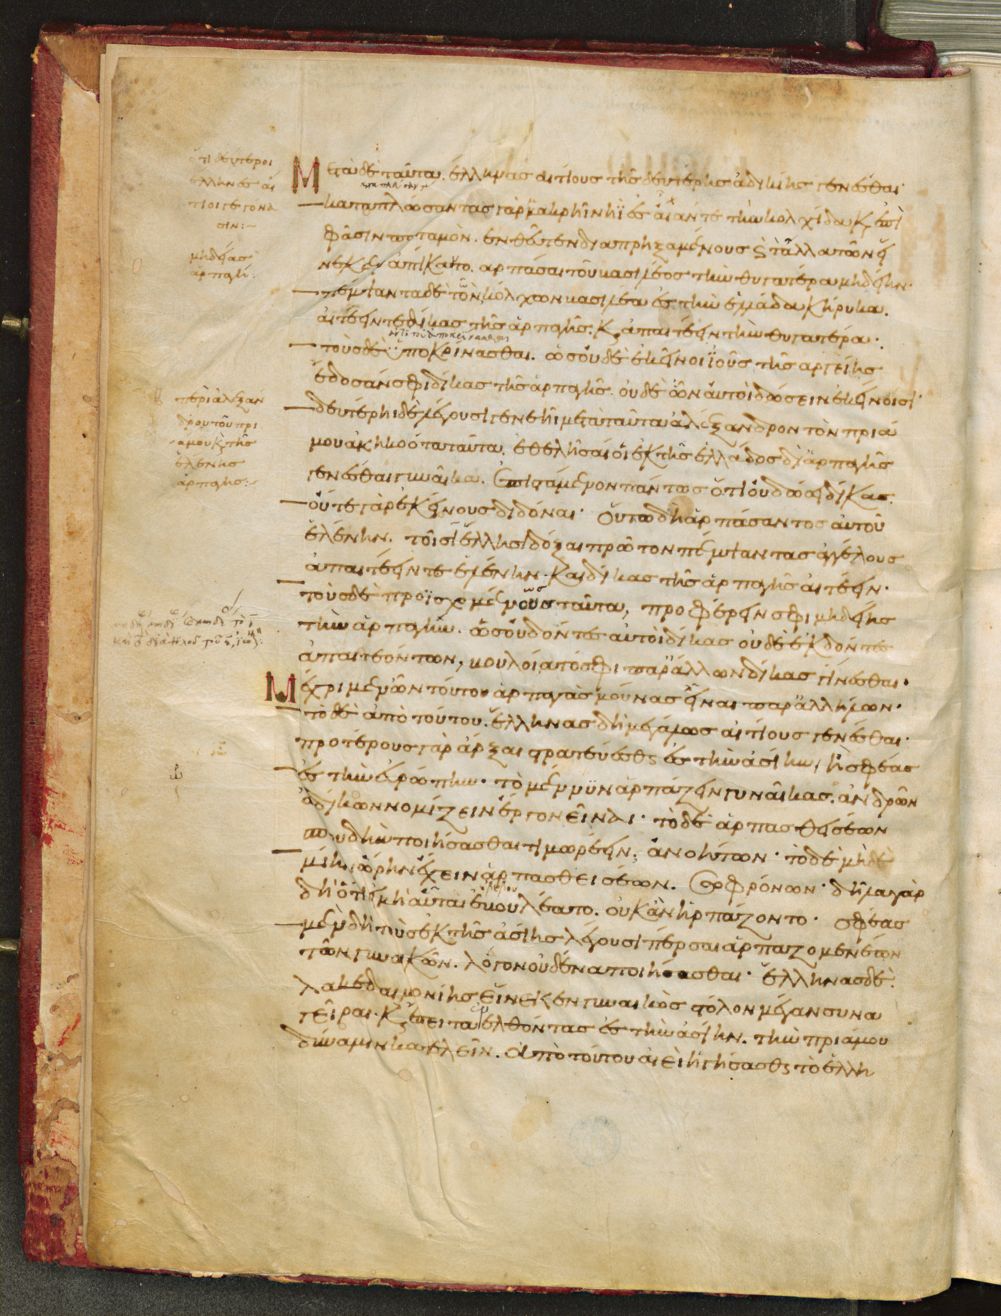 ὅτι δεύτεροι
ἕλληνες αἴ
τιοι γεγόνα
σιν:~
μηδείας
ἁρπαγή:
Μετὰ δὲ ταῦτα. ἕλληνας αἰτίους τῆς δευτέρης ἀδικίης γενέσθαι·
καταπλώσαντας γὰρ μακρῆι νηῒ ἐς αἶάν τε τὴν κολχίδα κ̀ ἐπὶ
φᾶσιν ποταμὸν. ἐνθεῦτεν διαπρηξαμένους κ̀ τἆλλα τῶν εἵ
νεκεν ἀπίκατο. ἁρπάσαι τοῦ βασιλέος τὴν θυγατέρα μηδείην·
πέμψαντα δὲ τὸν κόλχων βασιλέα ἐς τὴν ἑλλάδα κήρυκα.
αἰτέειν τε δίκας τῆς ἁρπαγῆς κ̀ ἀπαιτέειν τὴν θυγατέρα·
τοὺς δὲ ὑποκρίνασθαι. ὡς οὐδὲ ἐκεῖνοι ἰοῦς τῆς ἀργείης
ἔδοσάν σφι δίκας τῆς ἁρπαγῆς. οὐδὲ ὦν αὐτοὶ δώσειν ἐκείνοισι·
περὶ ἀλεξάν
δρου τοῦ πρι
άμου κ̀ τῆς
ἑλένης
ἁρπαγῆς:~
δευτέρηι δὲ λέγουσι γενεῆι μετὰ ταῦτα ἀλέξανδρον τὸν πριά
μου ἀκηκοότα ταῦτα. ἐθελῆσαί οἱ ἐκ τῆς ἑλλάδος δι ἁρπαγῆς
γενέσθαι γυναῖκα. ἐπιστάμενον πάντως ὅτι οὐ δώσει δίκας.
οὔτε γὰρ ἐκείνους διδόναι· οὕτω δὴ ἁρπάσαντος αὐτοῦ
ἑλένην. τοῖσι ἕλλησι δόξαι πρῶτον πέμψαντας ἀγγέλους
ἀπαιτέειν τε ἑλένην. καὶ δίκας τῆς ἁρπαγῆς αἰτέειν·
τοὺς δὲ προϊσχομένους ταῦτα, προφέρειν σφι μηδείης
τὴν ἁρπαγὴν. ὡς οὐ δόντες αὐτοὶ δίκας οὐδὲ ἐκδόντες
ἀπαιτεόντων, βουλοίατό σφι παρ ἄλλων δίκας γίνεσθαι·
Μέχρι μὲν ὦν τούτου ἁρπαγὰς μούνας εἶναι παρ ἀλλήλων·
τὸ δὲ ἀπὸ τούτου. ἕλληνας δὴ μεγάλως αἰτίους γενέσθαι·
προτέρους γὰρ ἄρξαι στρατεύεσθαι ἐς τὴν ἀσίην, ἢ σφέας
ἐς τὴν εὐρώπην· τὸ μέν νυν ἁρπάζειν γυναῖκας. ἀνδρῶν
ἀδίκων νομίζειν ἔργον εἶναι· τὸ δὲ ἁρπασθεισέων
σπουδὴν ποιήσασθαι τιμωρέειν, ἀνοήτων· τὸ δὲ μηδε
μίην ὤρην ἔχειν ἁρπασθεισέων. σωφρόνων· δῆλα γὰρ
δὴ ὅτι εἰ μὴ αὐταὶ ἐβουλέατο. οὐκ ἂν ἡρπάζοντο· σφέας
μὲν δὴ τοὺς ἐκ τῆς ἀσίης λέγουσι πέρσαι ἁρπαζομενέων
τῶν γυναικῶν. λόγον οὐδένα ποιήσασθαι· ἕλληνας δὲ.
λακεδαιμονίης εἵνεκεν γυναικὸς στόλον μέγαν συνα
γεῖραι. κ̀ ἔπειτα ἐλθόντας ἐς τὴν ἀσίην. τὴν πριάμου
δύναμιν κατελεῖν. ἀπὸ τούτου αἰεὶ ἡγήσασθαι τὸ ἑλλη